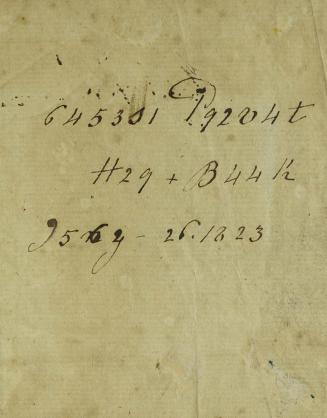 645301 P92V4t
H29 + B44k
J5xy - 26.1823